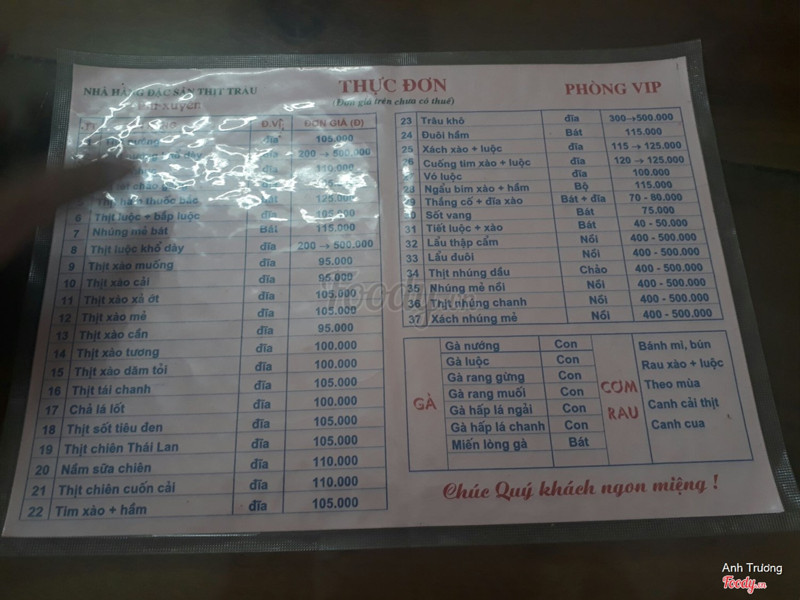 NHÀ HÀNG ĐẶC SẢN THỊT TRÂU
THỰC ĐƠN
(Đơn giá trên chưa có thuế)
PHÒNG VIP
Đ.VỊ ĐƠN GIÁ (Đ)
đĩa 105.000
đĩa 200 → 500.000
đĩa 110.000
Thịt hầm thuốc bắc Bát 125.000
6 Thịt luộc + bắp luộc đĩa 105.000
7 Nhúng mẻ bát Bát 115.000
8 Thịt luộc khổ dày đĩa 200 → 500.000
9 Thịt xào muống đĩa 95.000
10 Thịt xào cải đĩa 95.000
11 Thịt xào xả ớt đĩa 105.000
12 Thịt xào mẻ đĩa 105.000
13 Thịt xào cần đĩa 95.000
14 Thịt xào tương đĩa 100.000
15 Thịt xào dăm tỏi đĩa 100.000
16 Thịt tái chanh đĩa 105.000
17 Chả lá lốt đĩa 100.000
18 Thịt sốt tiêu đen đĩa 105.000
19 Thịt chiên Thái Lan đĩa 105.000
20 Nầm sữa chiên đĩa 110.000
21 Thịt chiên cuốn cải đĩa 110.000
22 Tim xào + hầm đĩa 105.000
23 Trâu khô đĩa 300→500.000
24 Đuôi hầm Bát 115.000
25 Xách xào + luộc đĩa 115 → 125.000
26 Cuống tim xào + luộc đĩa 120 → 125.000
27 Vó luộc đĩa 100.000
28 Ngẩu bim xào + hầm Bộ 115.000
29 Thắng cố + đĩa xào Bát + đĩa 70 - 80.000
30 Sốt vang Bát 75.000
31 Tiết luộc + xào Bát 40 - 50.000
32 Lẩu thập cẩm Nồi 400 - 500.000
33 Lẩu đuôi Nồi 400 - 500.000
34 Thịt nhúng dầu Chảo 400 - 500.000
35 Nhúng mẻ nồi Nồi 400 - 500.000
36 Thịt nhúng chanh Nồi 400 - 500.000
37 Xách nhúng mẻ Nồi 400 - 500.000
GÀ
Gà nướng Con
Gà luộc Con
Gà rang gừng Con
Gà rang muối Con
Gà hấp lá ngải Con
Gà hấp lá chanh Con
Miến lòng gà Bát
CƠM
RAU
Bánh mì, bún
Rau xào + luộc
Theo mùa
Canh cải thịt
Canh cua
Chúc Quý khách ngon miệng !
Foody.vn
Anh Trương
Foody.vn